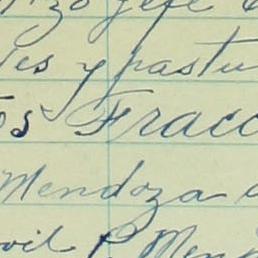 zo jefe
es y pastu
os Fracc
Mendoza
vil P. Men